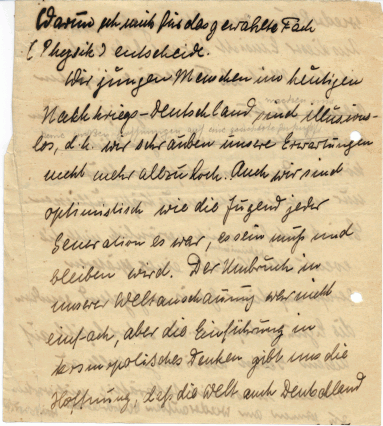 Warum ich mich für das gewählte Fach
(Physik) entscheide.
Wir jungen Menschen im heutigen
Nachkriegs-Deutschland sind illusions-
los, d.h. wir schrauben unsere Erwartungen
nicht mehr allzu hoch. Auch wir sind
optimistisch wie die Jugend jeder
Generation es war, es sein muß und
bleiben wird. Der Umbruch in
unserer Weltanschauung war nicht
einfach, aber die Einführung in
kosmopolisches Denken gibt uns die
Hoffnung, daß die Welt auch Deutschland